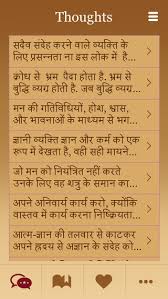 Thoughts
सदैव संदेह करने वाले व्यक्ति के
लिए प्रसन्नता ना इस लोक में है...
क्रोध से भ्रम पैदा होता है. भ्रम से
बुद्धि व्यग्र होती है. जब बुद्धि...
मन की गतिविधियों, होश, श्वास,
और भावनाओं के माध्यम से भग...
ज्ञानी व्यक्ति ज्ञान और कर्म को एक
रूप में देखता है, वही सही मायने...
जो मन को नियंत्रित नहीं करते
उनके लिए वह शत्रु के समान का...
अपने अनिवार्य कार्य करो, क्योंकि
वास्तव में कार्य करना निष्क्रियता...
आत्म-ज्ञान की तलवार से काटकर
अपने ह्रदय से अज्ञान के संदेह को...